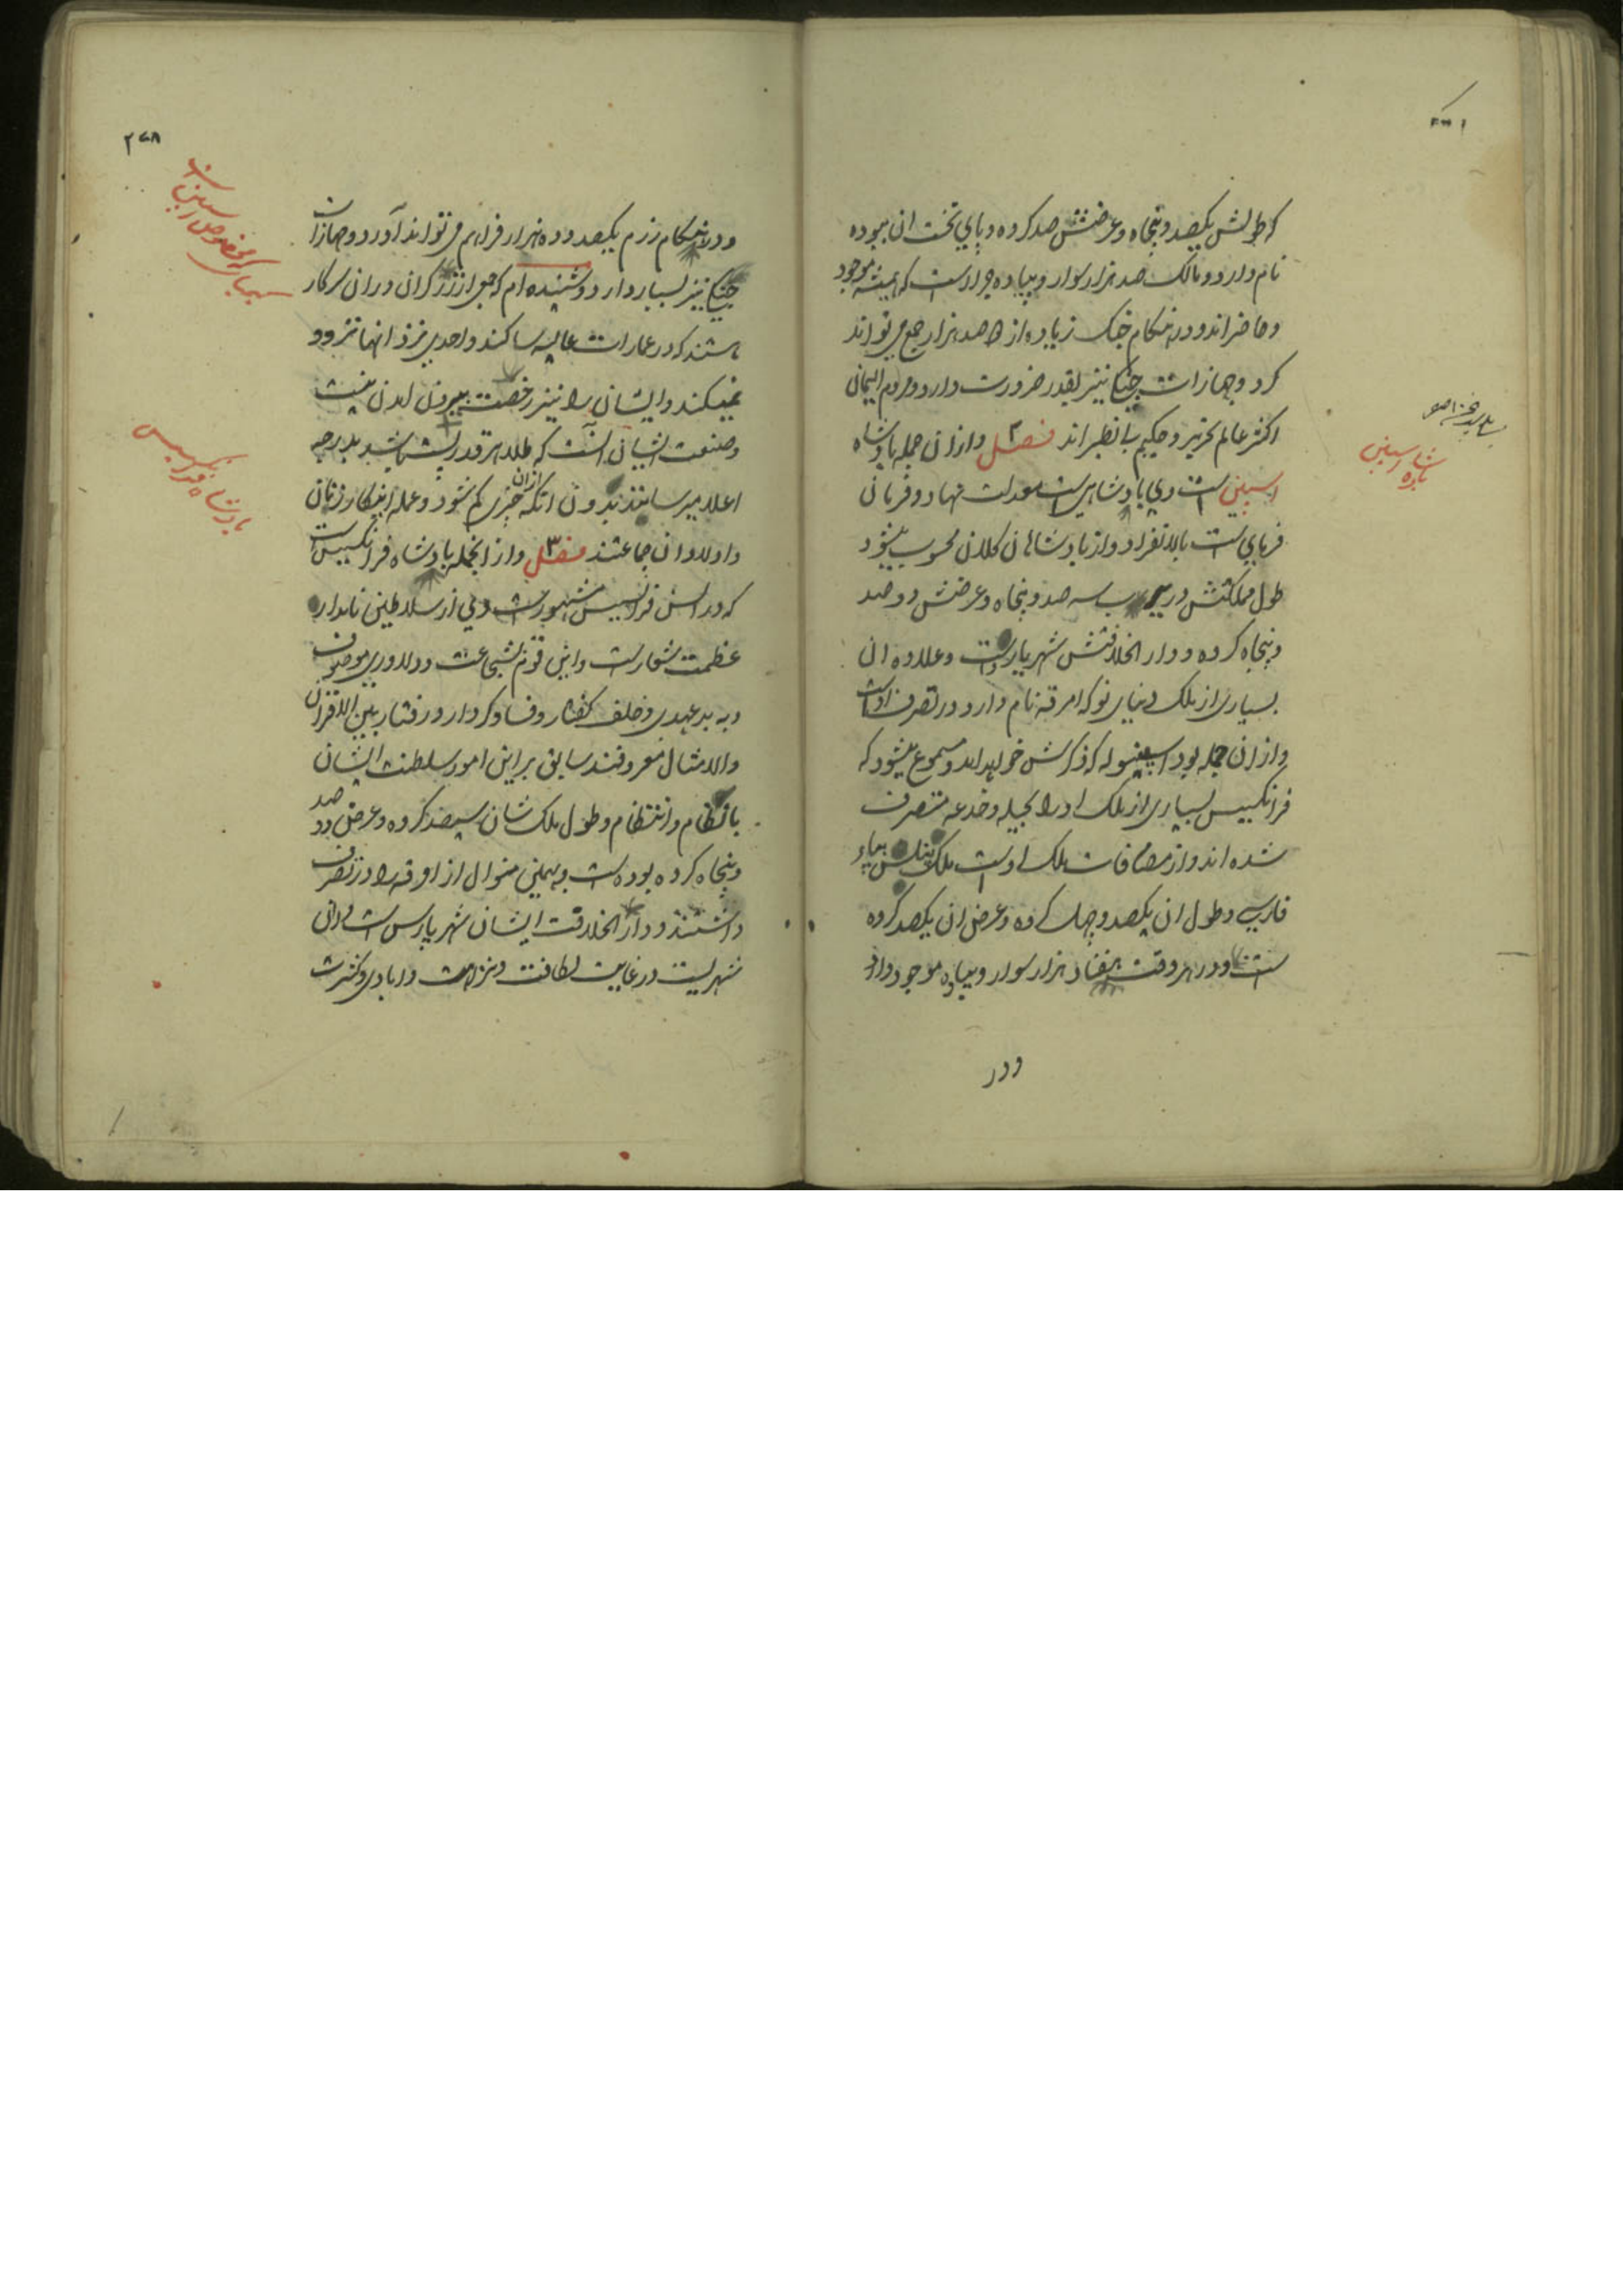 که طولش یکصد و پنجاه و عرضش صد کروه و پای تخت ان
نام دارد و مالک صد هزار سوار و پیاده جرار است که همیشه موجود
و حاضر اند و در هنکام جنک زیاده از صد هزار جمع می تواند
کرد و جهازات جنکی نیز بقدر ضرورت دارد و مردم الیمان
اکثر عالم نحریر و حکیم بی نظیر اند فصل ۲ و از ان جمله پادشاه
اسپین است وی پادشاهی است معدلت نهاد و فرمان
فرمای است بالانفراد و از پادشاهان کلان محسوب میشود
طول مملکتش در سه صد و پنجاه و عرضش دو صد
و پنجاه کروه و دار الخلافتش شهر است و علاوه ان
بسیاری از ملک دنیای نو که امرقه نام دارد در تصرف اوست
و از ان جمله بود که ذکرش خواهد امد و مسموع میشود که
فرانکسیس بسیاری از ملک او را بحیله و خدعه متصرف
شده اند و از مضافات ملک اوست ملک
فارسی و طول ان یکصد و چهل کروه و عرض ان یکصد کروه
است و در هر وقت هفتاد هزار سوار و پیاده موجود دارد
ودر
پادشاه اسپین
۲۷۸
و در هنکام رزم یکصد و ده هزار فراهم می تواند آورد و جهازات
جنکی نیز بسیار دارد و شنیده ام که جمعی از زرکران در ان سرکار
هستند که در عمارات عالیه ساکند و احدی نزد انها نمی رود
نمیکند و ایشان را نیز رخصت بیرون امدن نیست
و صنعت ایشان آنست که طلا هر قدر باشد بدرجه
اعلا میرسانند بدون انکه از ان چیزی کم شود و عمله اینکار زنان
و اولاد ان جماعتند فصل ۳ و از انجمله پادشاه فرانکسیس است
که در السن فرانسیس مشهور است وی از سلاطین نامدار
عظمت شعار است و این قوم بشجاعت و دلاوری موصوف
و به بد عهدی و خلف کفتار و فساد کردار و رفتار بین الاقران
والامثال معروفند سابق بر این امور سلطنت ایشان
بانتظام و طول ملک شان سیصد کروه و عرض دو صد
و پنجاه کروه بوده است و بهمین منوال از امرقه را در تصرف
داشتند و دار الخلافت ایشان شهر پارس است و ان
شهریست در غایت لطافت و نزاهت و ابادی و کثرت
پادشاه فرانکسیس